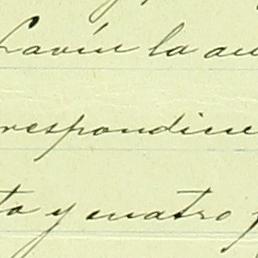 Lavín la au
respondine
to y cuatro